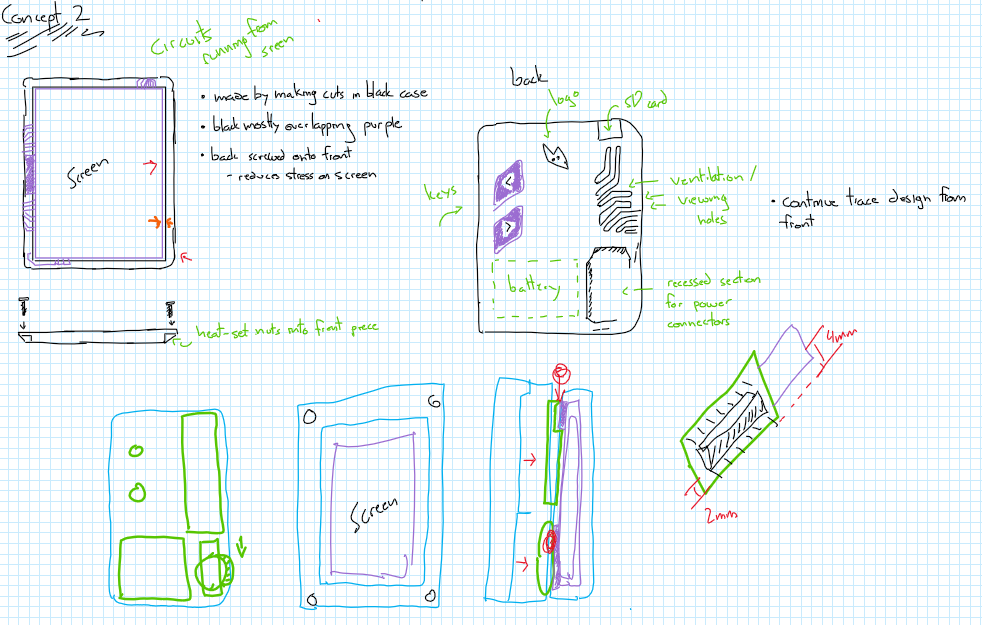 Concept 2
Circuits
running from
screen
Screen
• made by making cuts in black case
• black mostly overlapping purple
• back screwed onto front
- reduces stress on screen
heat-set nuts into front piece
back
logo
SD card
keys
<
>
battery
ventilation /
viewing
holes
recessed section
for power
connectors
• continue trace design from
front
Screen
4mm
2mm